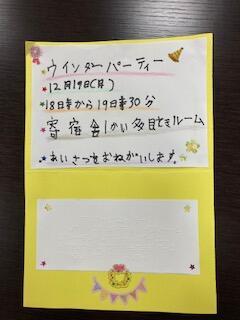 ウインターパーティー
12月19日(月)
18日寺から19日寺30分
寄宿舎1かい多目てきルーム
あいさつをおねがいします。